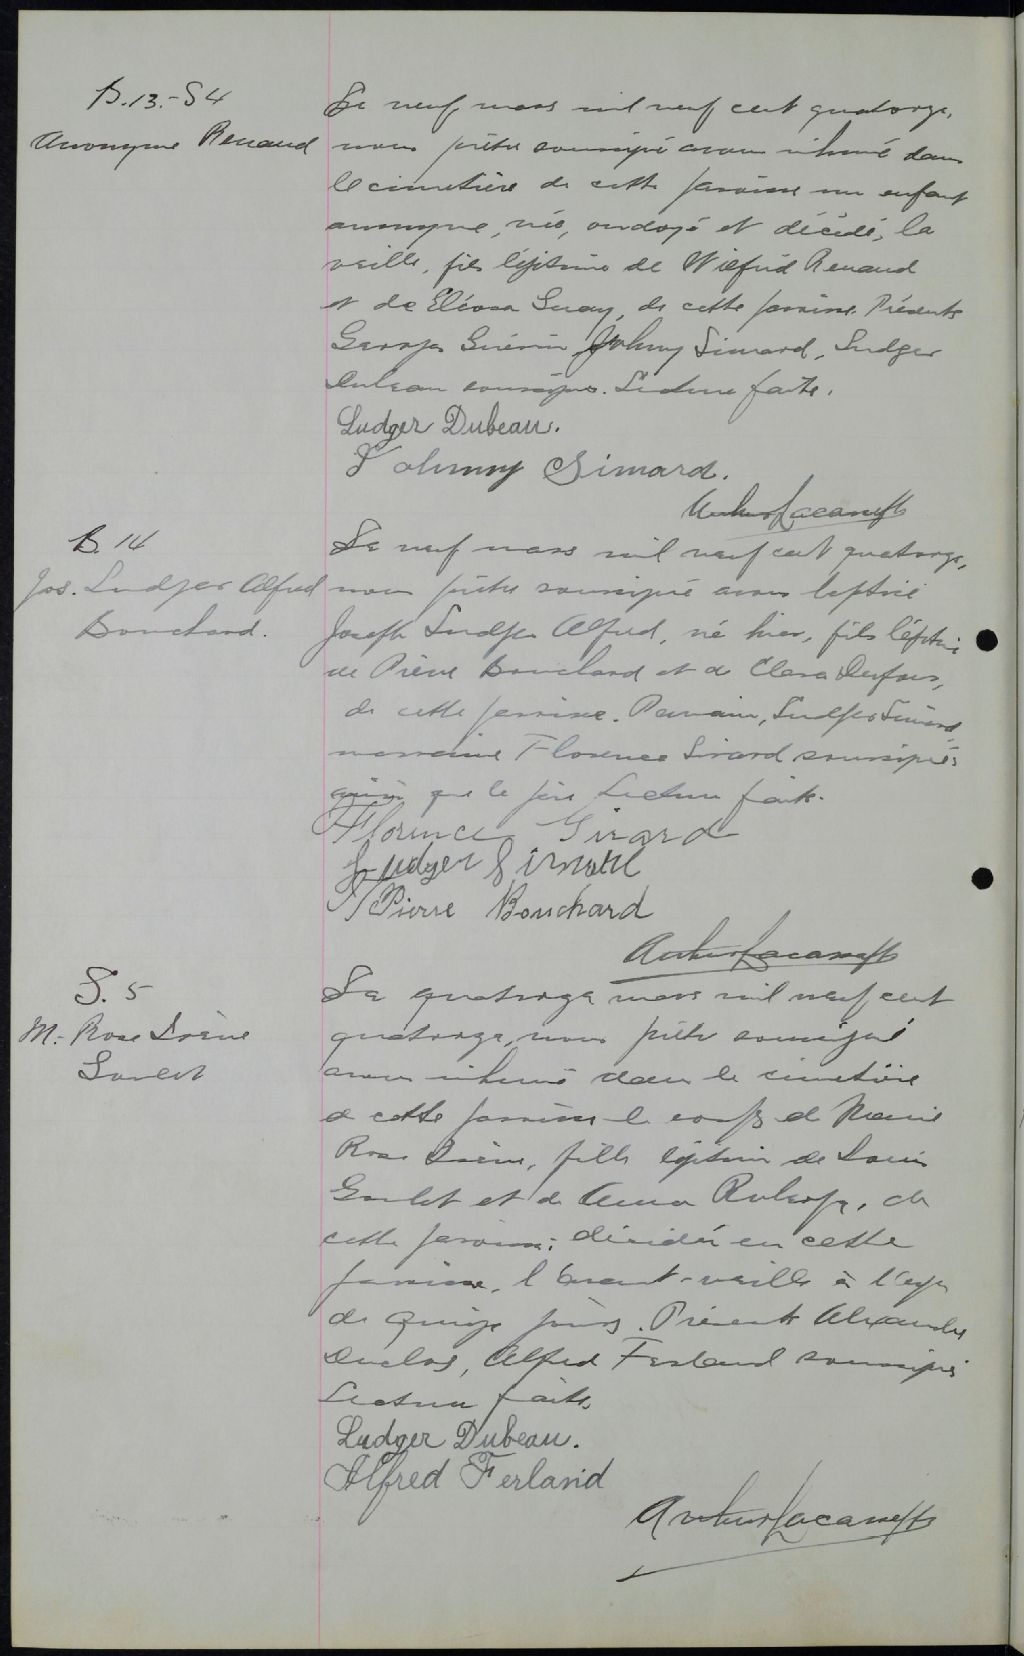 B.13.-S4
Anonyme Renaud
Le neuf mars mil neuf cent quatorze,
nous prêtre soussigné avons inhumé dans
le cimetière de cette paroisse un enfant
anonyme, née, ondoyé et décédé, la
veille, fils légitime de Wilfrid Renaud
et de Guay, de cette paroisse. Présents
Guérin Johnny Simard, Ludger
Dubeau soussignés. Lecture faite.
Ludger Dubeau.
Johnny Simard.
B. 14
Jos. Ludger Alfred
Bouchard.
Le neuf mars mil neuf cent quatorze,
nous prêtre soussigné avons baptisé
Joseph Ludger Alfred, né hier, fils légitime
de Pierre Bouchard et de Clara Dufour,
de cette paroisse. Parrain, Ludger Simard,
marraine Florence Girard soussignés
ainsi que le père Lecture faite.
Florence Girard
Ludger Simard
Pierre Bouchard
S. 5
M.- Rose Irène
Goulet
Le quatorze mars mil neuf cent
quatorze, nous prêtre soussigné
avons inhumé dans le cimetière
de cette paroisse le corps de Marie
Rose Irène, fille légitime de Louis
Goulet et de Anna Roberge, de
cette paroisse; décédée en cette
paroisse, l'avant-veille à l'âge
de quinze jours. Présents Alexandre
Duclos, Alfred Ferland soussignés
Lecture faite.
Ludger Dubeau.
Alfred Ferland